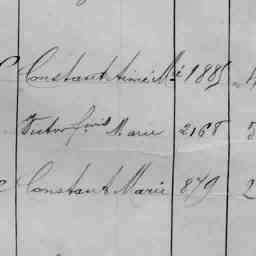 Constant Aimé Mie 1885
Victor Frois Marie 2168
Constant Marie 879 2